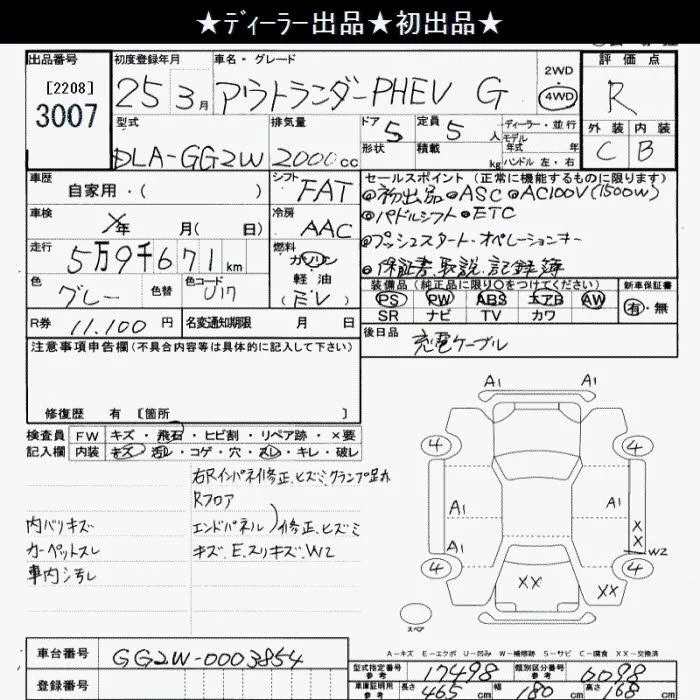 ★ディーラー出品★初出品★
出品番号 初度登録年月 車名・グレード 2WD 4WD 評価点
[2208]
3007
25 3月 アウトランダーPHEV G R
外装 内装
C B
型式 排気量 ドア 5 定員 5人 ディーラー・並行
モデル年式 年
形状 積載 kg ハンドル 左・右
DLA-GG2W 2000cc
車歴 シフト FAT セールスポイント (正常に機能するものに限ります)
自家用・( )
◎初出品 ◎ASC ◎AC100V(1500W)
車検 年 月( 日) 冷房 AAC
◎パドルシフト ◎ETC
走行 5万9千671km 燃料 ガソリン 軽油 (EV)
◎プッシュスタート・オペレーションキー
◎保証書、取説、記録簿
色 グレー 色替 色コード U17
装備品 (純正品に限り○をつけてください) 新車保証書
PS PW ABS エアB AW 有・無
SR ナビ TV カワ
R券 11,100円 名変通知期限 月 日
後日品 充電ケーブル
注意事項申告欄(不具合内容等は具体的に記入して下さい)
修復歴 有 [箇所 ]
検査員 FW キズ・飛石・ヒビ割・リペア跡・×要
記入欄 内装 キズ・汚レ・コゲ・穴・スレ・キレ・破レ
右Rインパネ修正、ヒズミ、クランプ
Rフロア
エンドパネル)修正、ヒズミ
キズ、E、スリキズ、W2
内バリキズ
カーペットスレ
車内シ汚レ
A1 A1
4 4
A1 A1
A1 X
X
W2
4 4
XX XX
スペア
A-キズ E-エクボ U-凹み W-補修跡 S-サビ C-腐食 XX-交換済
車台番号 GG2W-0003854
登録番号
型式指定番号 参考 17498 類別区分番号 参考 6098
車庫証明用 参考 長さ 465cm 幅 180cm 高さ 168cm